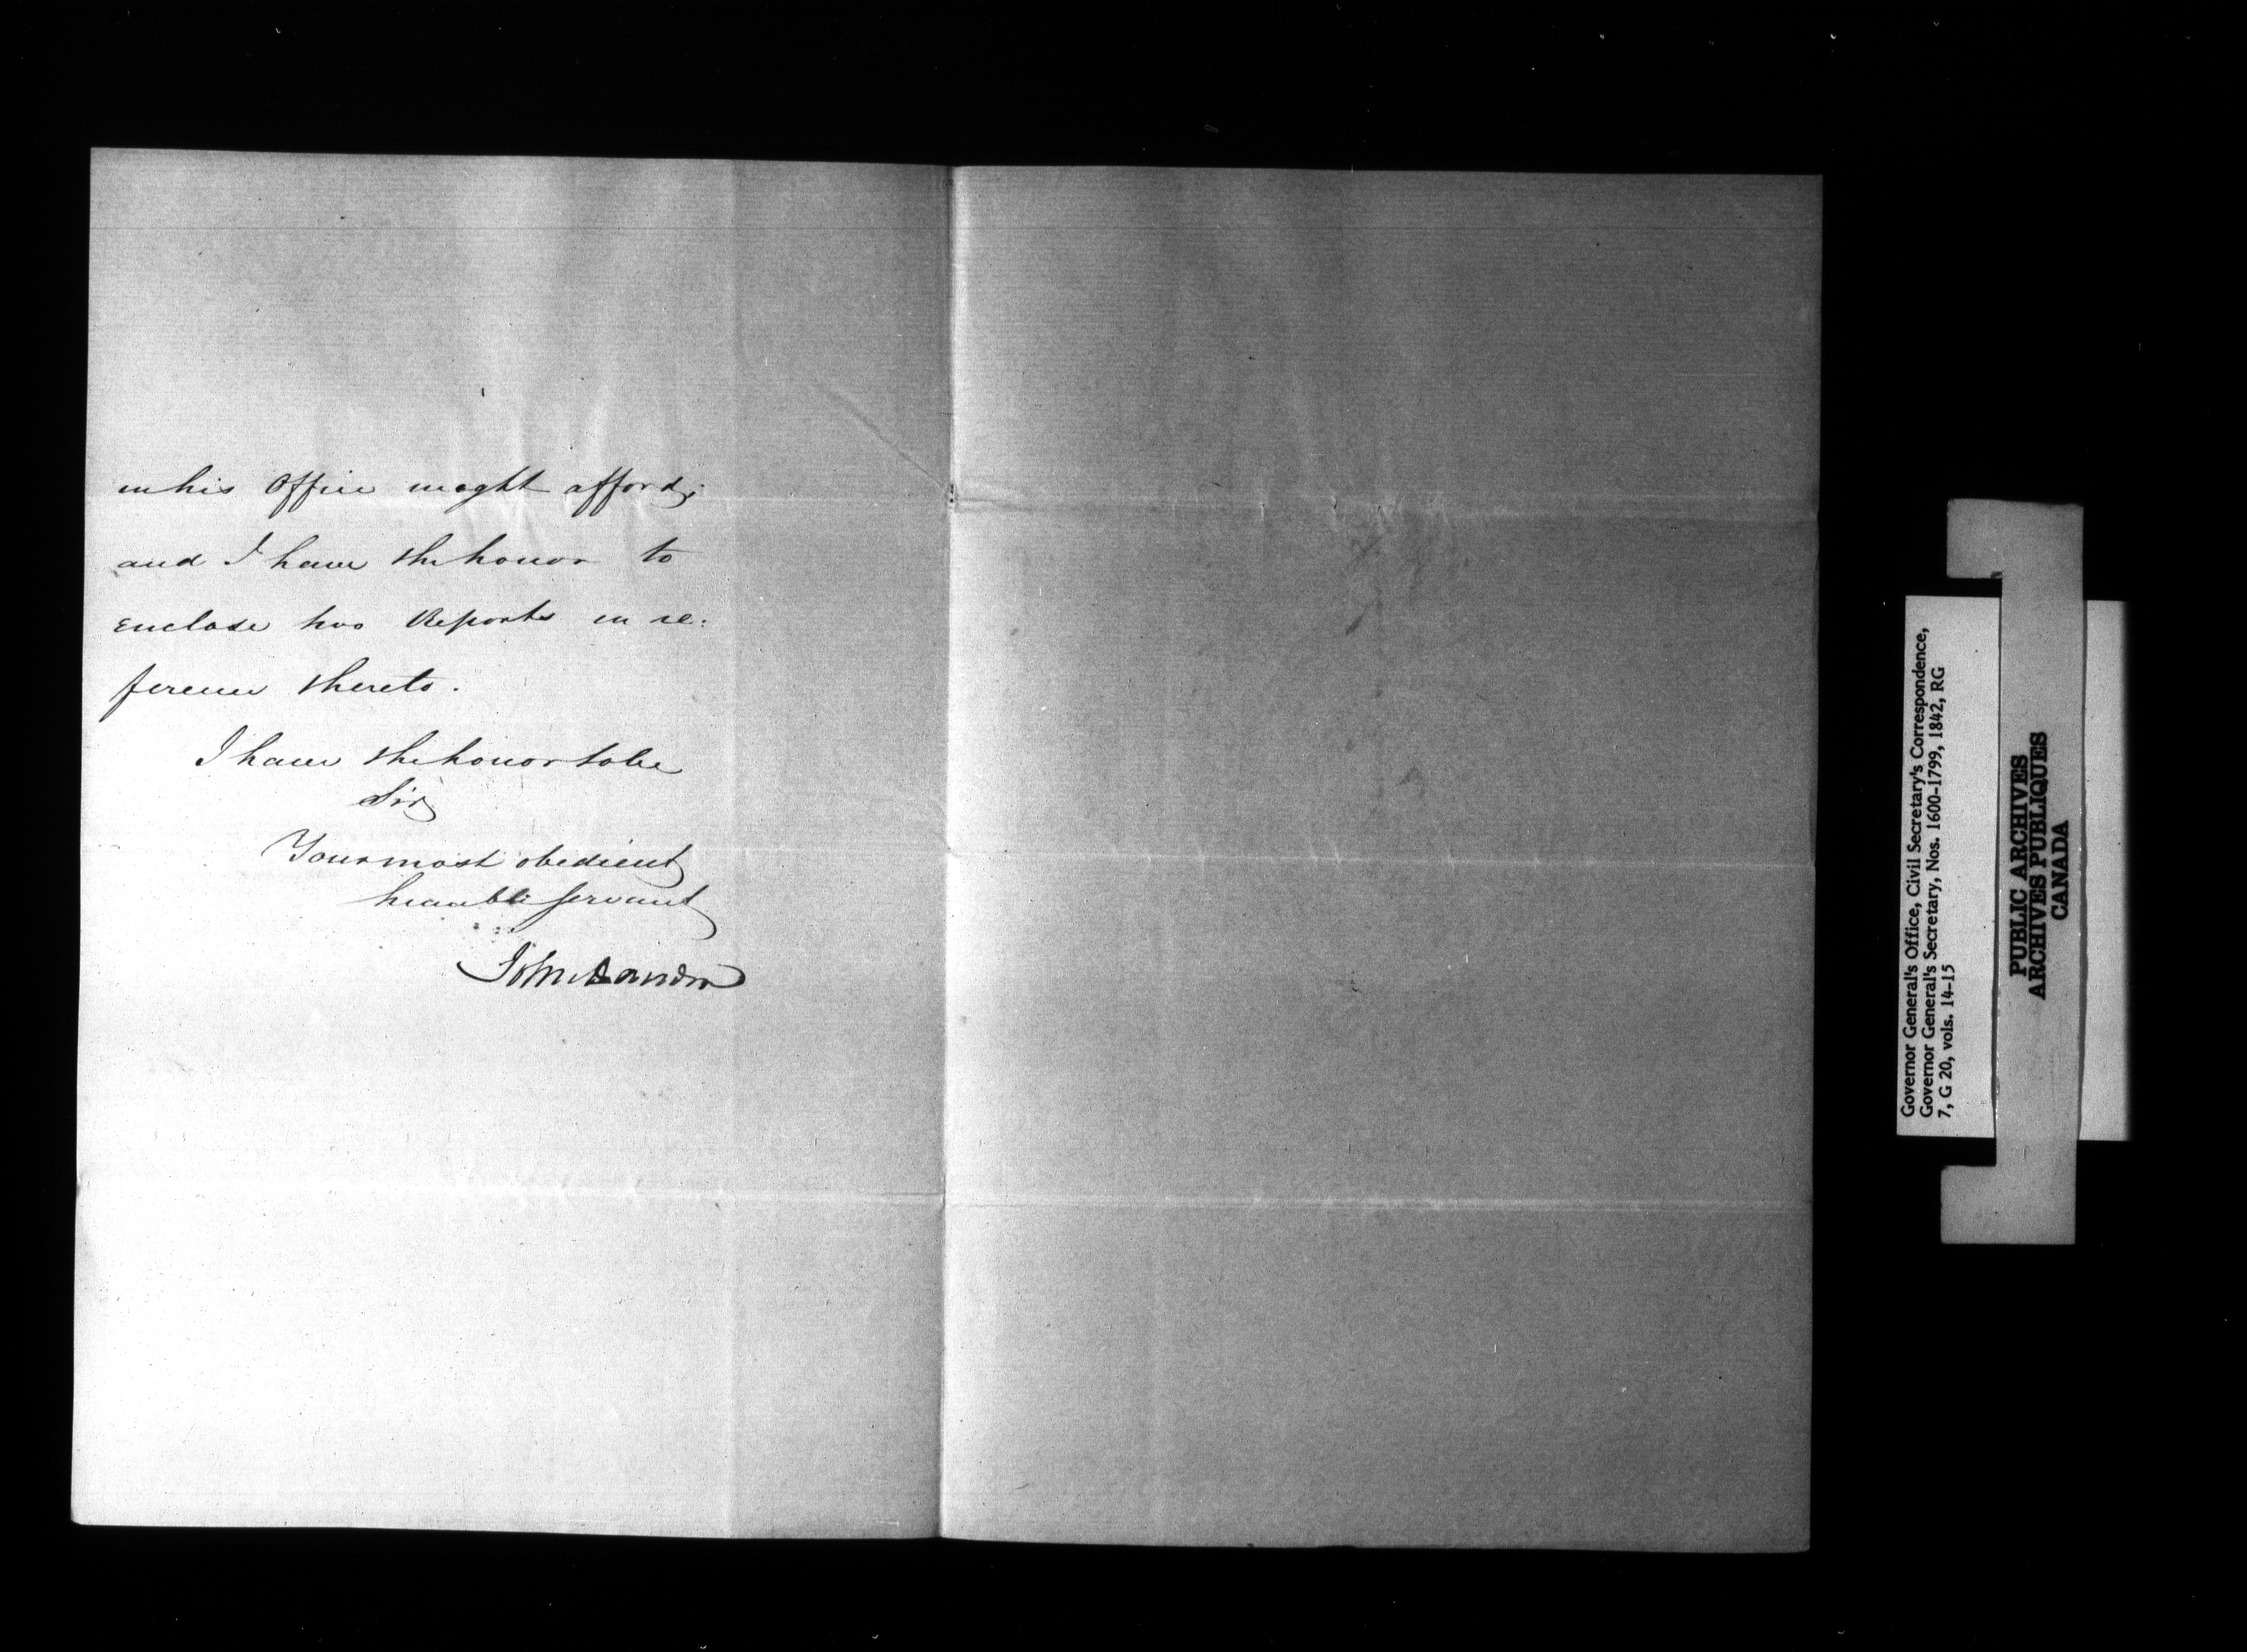 in his Office might afford;
and I have the honor to
enclose two Reports in re:
ference thereto.
I have the honor to be
Sir,
Your most obedient
humble servant
John Davidson
Governor General's Office, Civil Secretary's Correspondence,
Governor General's Secretary, Nos. 1600-1799, 1842, RG
7, G 20, vols. 14-15
PUBLIC ARCHIVES
ARCHIVES PUBLIQUES
CANADA